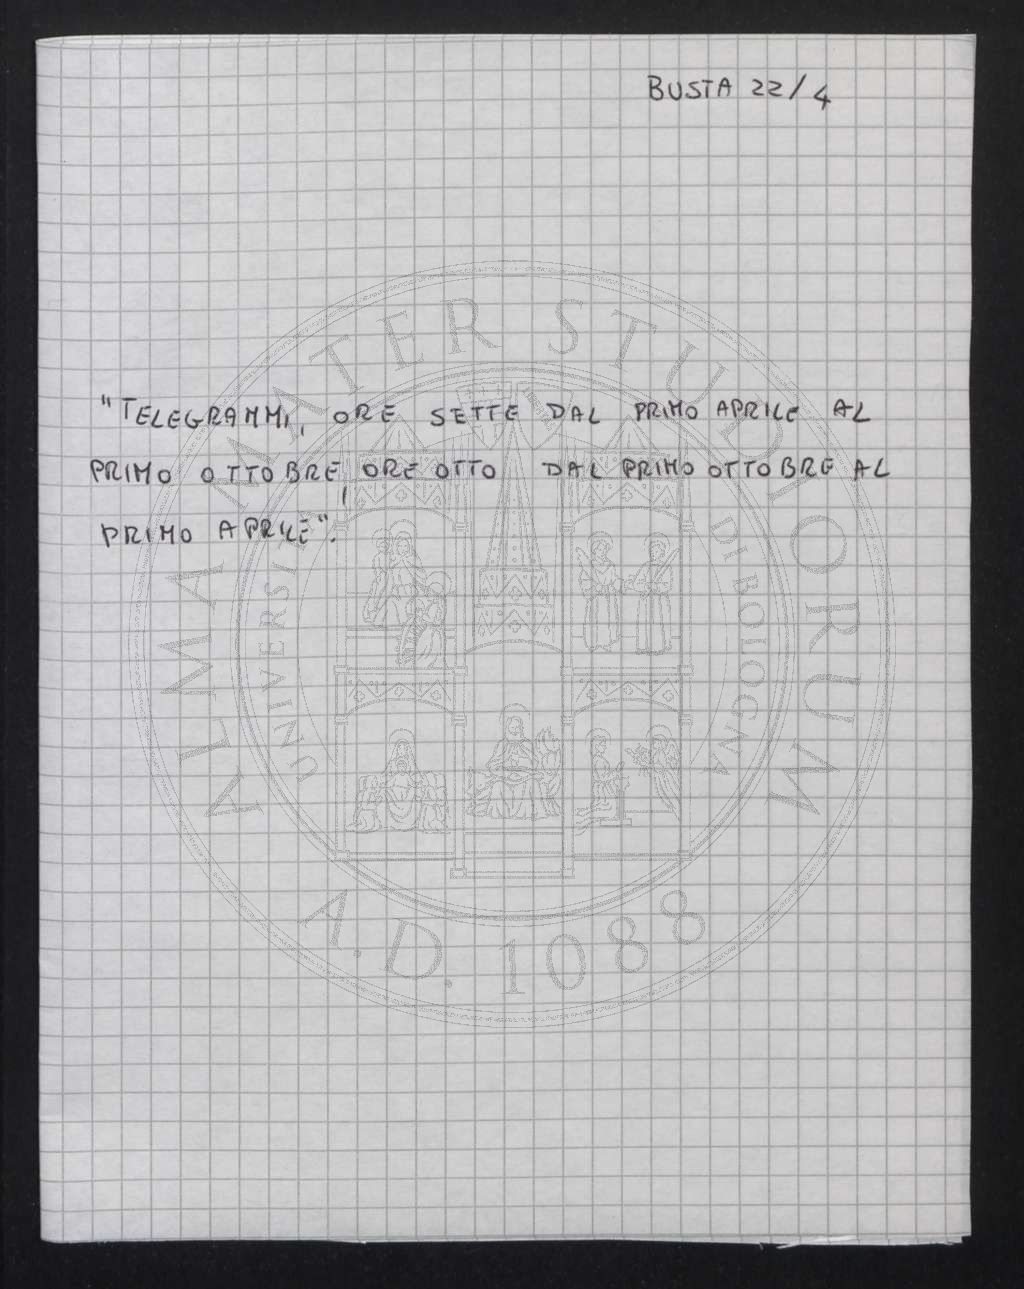 BUSTA 22/4
"TELEGRAMMI, ORE SETTE DAL PRIMO APRILE AL
PRIMO OTTOBRE, ORE OTTO DAL PRIMO OTTOBRE AL
PRIMO APRILE".
ALMA MATER STUDIORUM
UNIVERSITÀ DI BOLOGNA
A.D. 1088